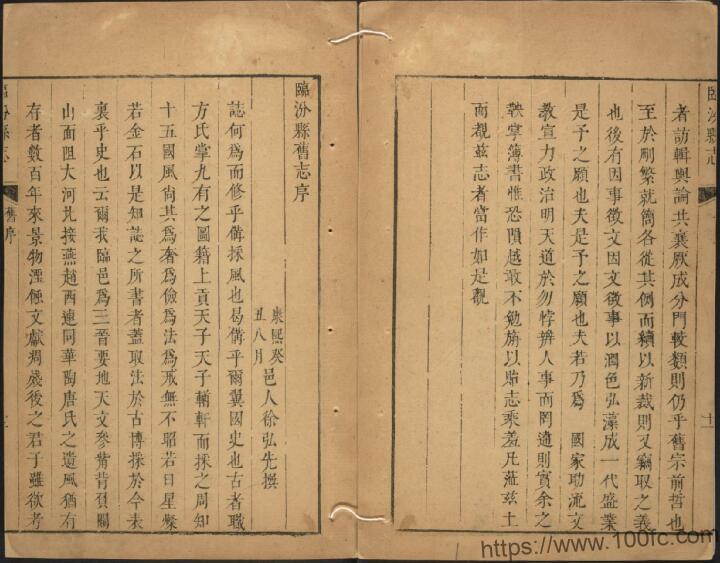 臨汾縣志
十一
者訪輯輿論共襄厥成分門較類則仍乎舊宗前哲也
至於刪繁就簡各從其例而續以新裁則又竊取之義
也後有因事徵文因文徵事以潤色弘藻成一代盛業
是予之願也夫是予之願也夫若乃爲 國家助流文
教宣力政治明天道於勿悖辨人事而罔遺則實余之
鞅掌簿書惟恐隕越敢不勉旃以貽志乘羞凡蒞茲土
而覩茲志者當作如是觀
臨汾縣舊志序
康熙癸
丑八月
邑人徐弘先撰
誌何爲而修乎備採風也曷備乎爾翼國史也古者職
方氏掌九有之圖籍上貢天子天子輶軒而採之周知
十五國風尚其爲奢爲儉爲法爲戒無不昭若日星燦
若金石以是知誌之所書者蓋取法於古博採於今表
裏乎史也云爾我臨邑爲三晉要地天文參觜背負關
山面阻大河北接燕趙西連同華陶唐氏之遺風猶有
存者數百年來景物湮極文獻凋殘後之君子雖欲考
臨汾縣志
舊序
https://www.100fc.com